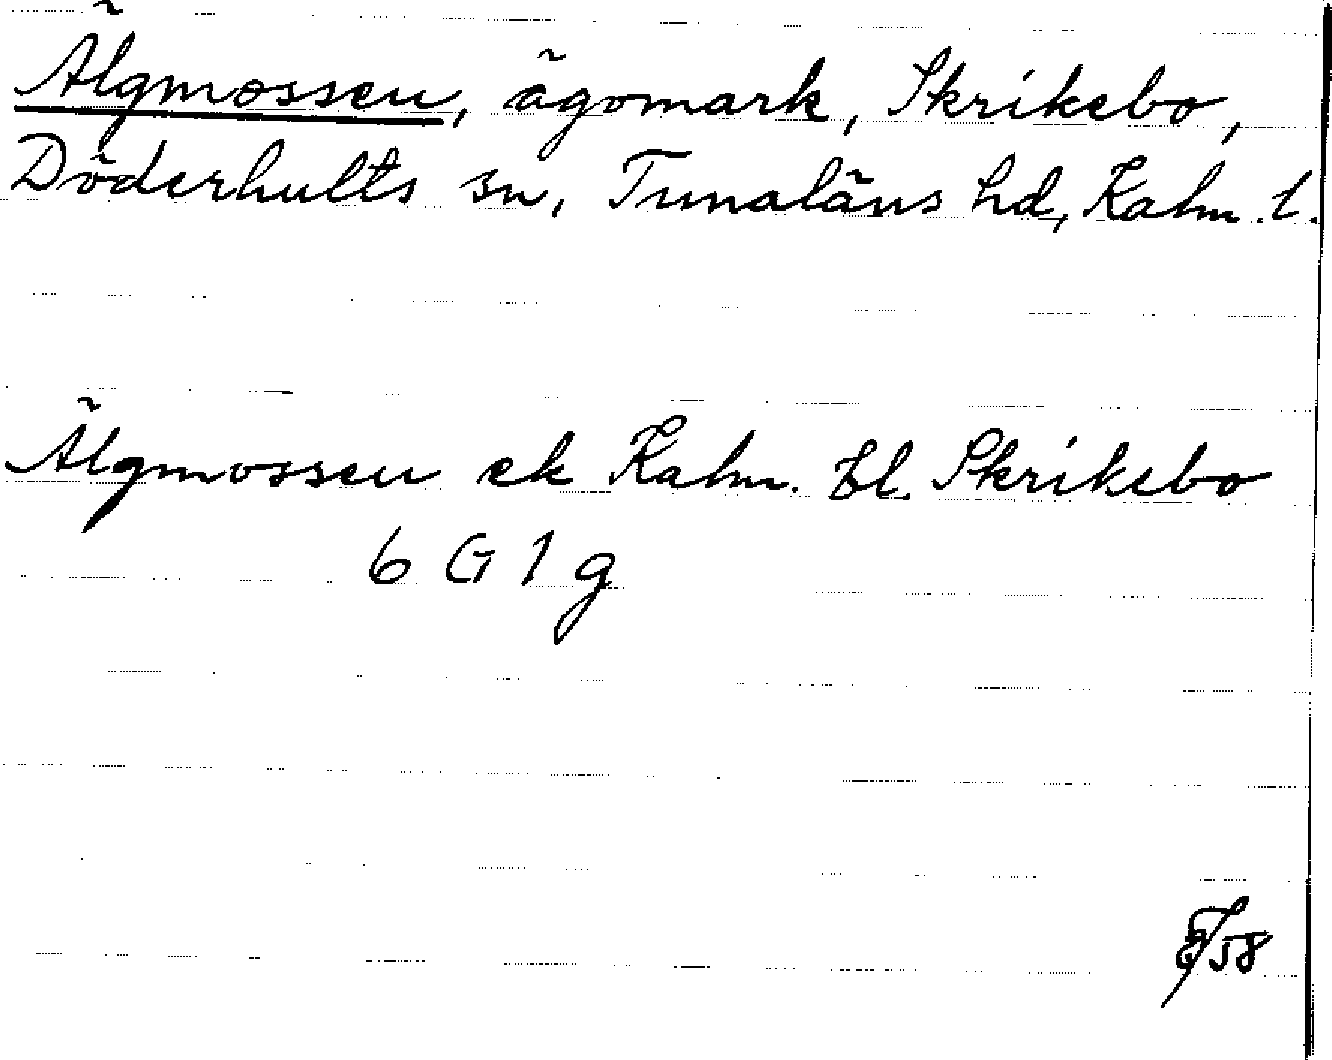 Älgmossen, ägomark, Skrikebo,
Döderhults sn, Tunaläns hd, Kalm. l.
Älgmossen ek Kalm. bl. Skrikebo
6 G 1 g
58